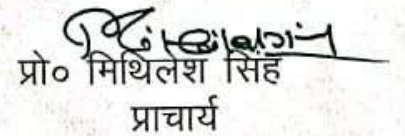 प्रो० मिथिलेश सिंह
प्राचार्य